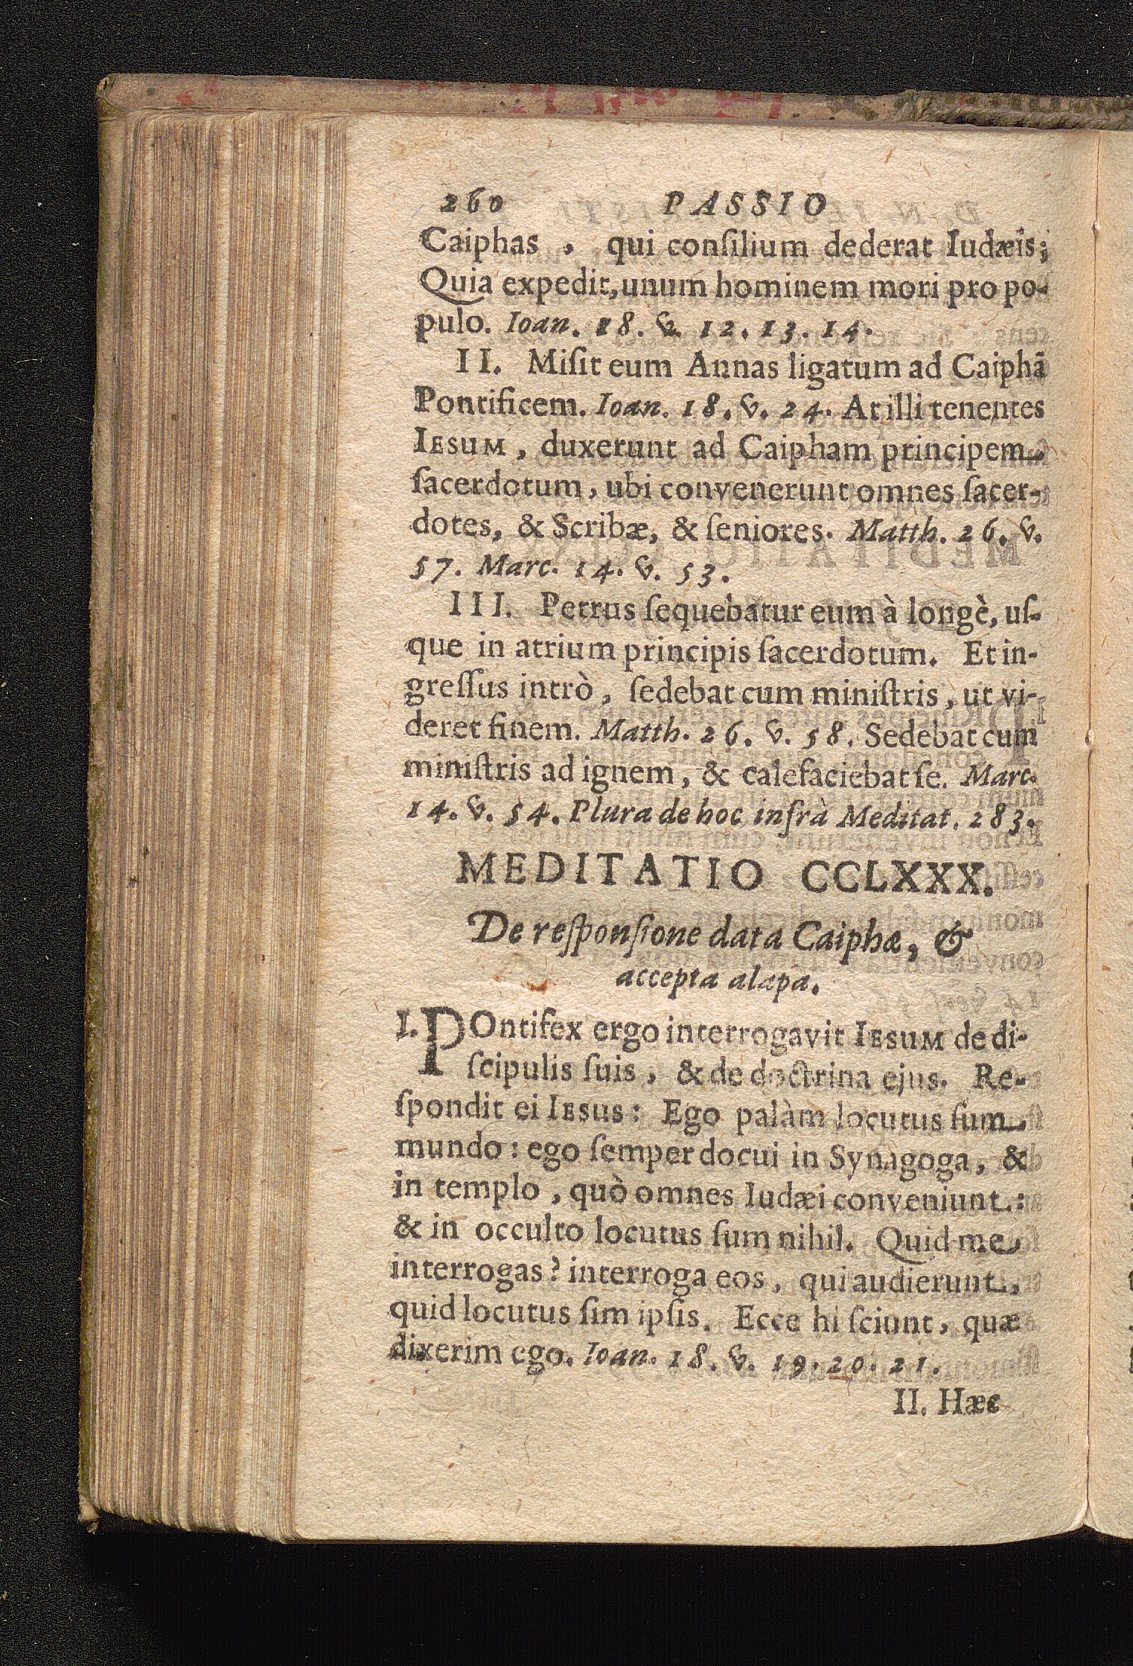 260 PASSIO
Caiphas, qui conſilium dederat Iudæis;
Quia expedit, unum hominem mori pro po-
pulo. Ioan. 18. v. 12. 13. 14.
II. Miſit eum Annas ligatum ad Caiphã
Pontificem. Ioan. 18. v. 24. At illi tenentes
IESUM, duxerunt ad Caipham principem
ſacerdotum, ubi convenerunt omnes ſacer-
dotes, & Scribæ, & ſeniores. Matth. 26. v.
57. Marc. 14. v. 53.
III. Petrus ſequebatur eum à longè, uſ-
que in atrium principis ſacerdotum. Et in-
greſſus intrò, ſedebat cum miniſtris, ut vi-
deret finem. Matth. 26. v. 58. Sedebat cum
miniſtris ad ignem, & calefaciebat ſe. Marc.
14. v. 54. Plura de hoc infrà Meditat. 283.
MEDITATIO CCLXXX.
De reſponſione data Caiphæ, &
accepta alapa.
I. POntifex ergo interrogavit IESUM de di-
ſcipulis ſuis, & de doctrina ejus. Re-
ſpondit ei IESUS: Ego palàm locutus ſum
mundo: ego ſemper docui in Synagoga, &
in templo, quò omnes Iudæi conveniunt:
& in occulto locutus ſum nihil. Quid me
interrogas? interroga eos, qui audierunt,
quid locutus ſim ipſis. Ecce hi ſciunt, quæ
dixerim ego. Ioan. 18. v. 19. 20. 21.
II. Hæc